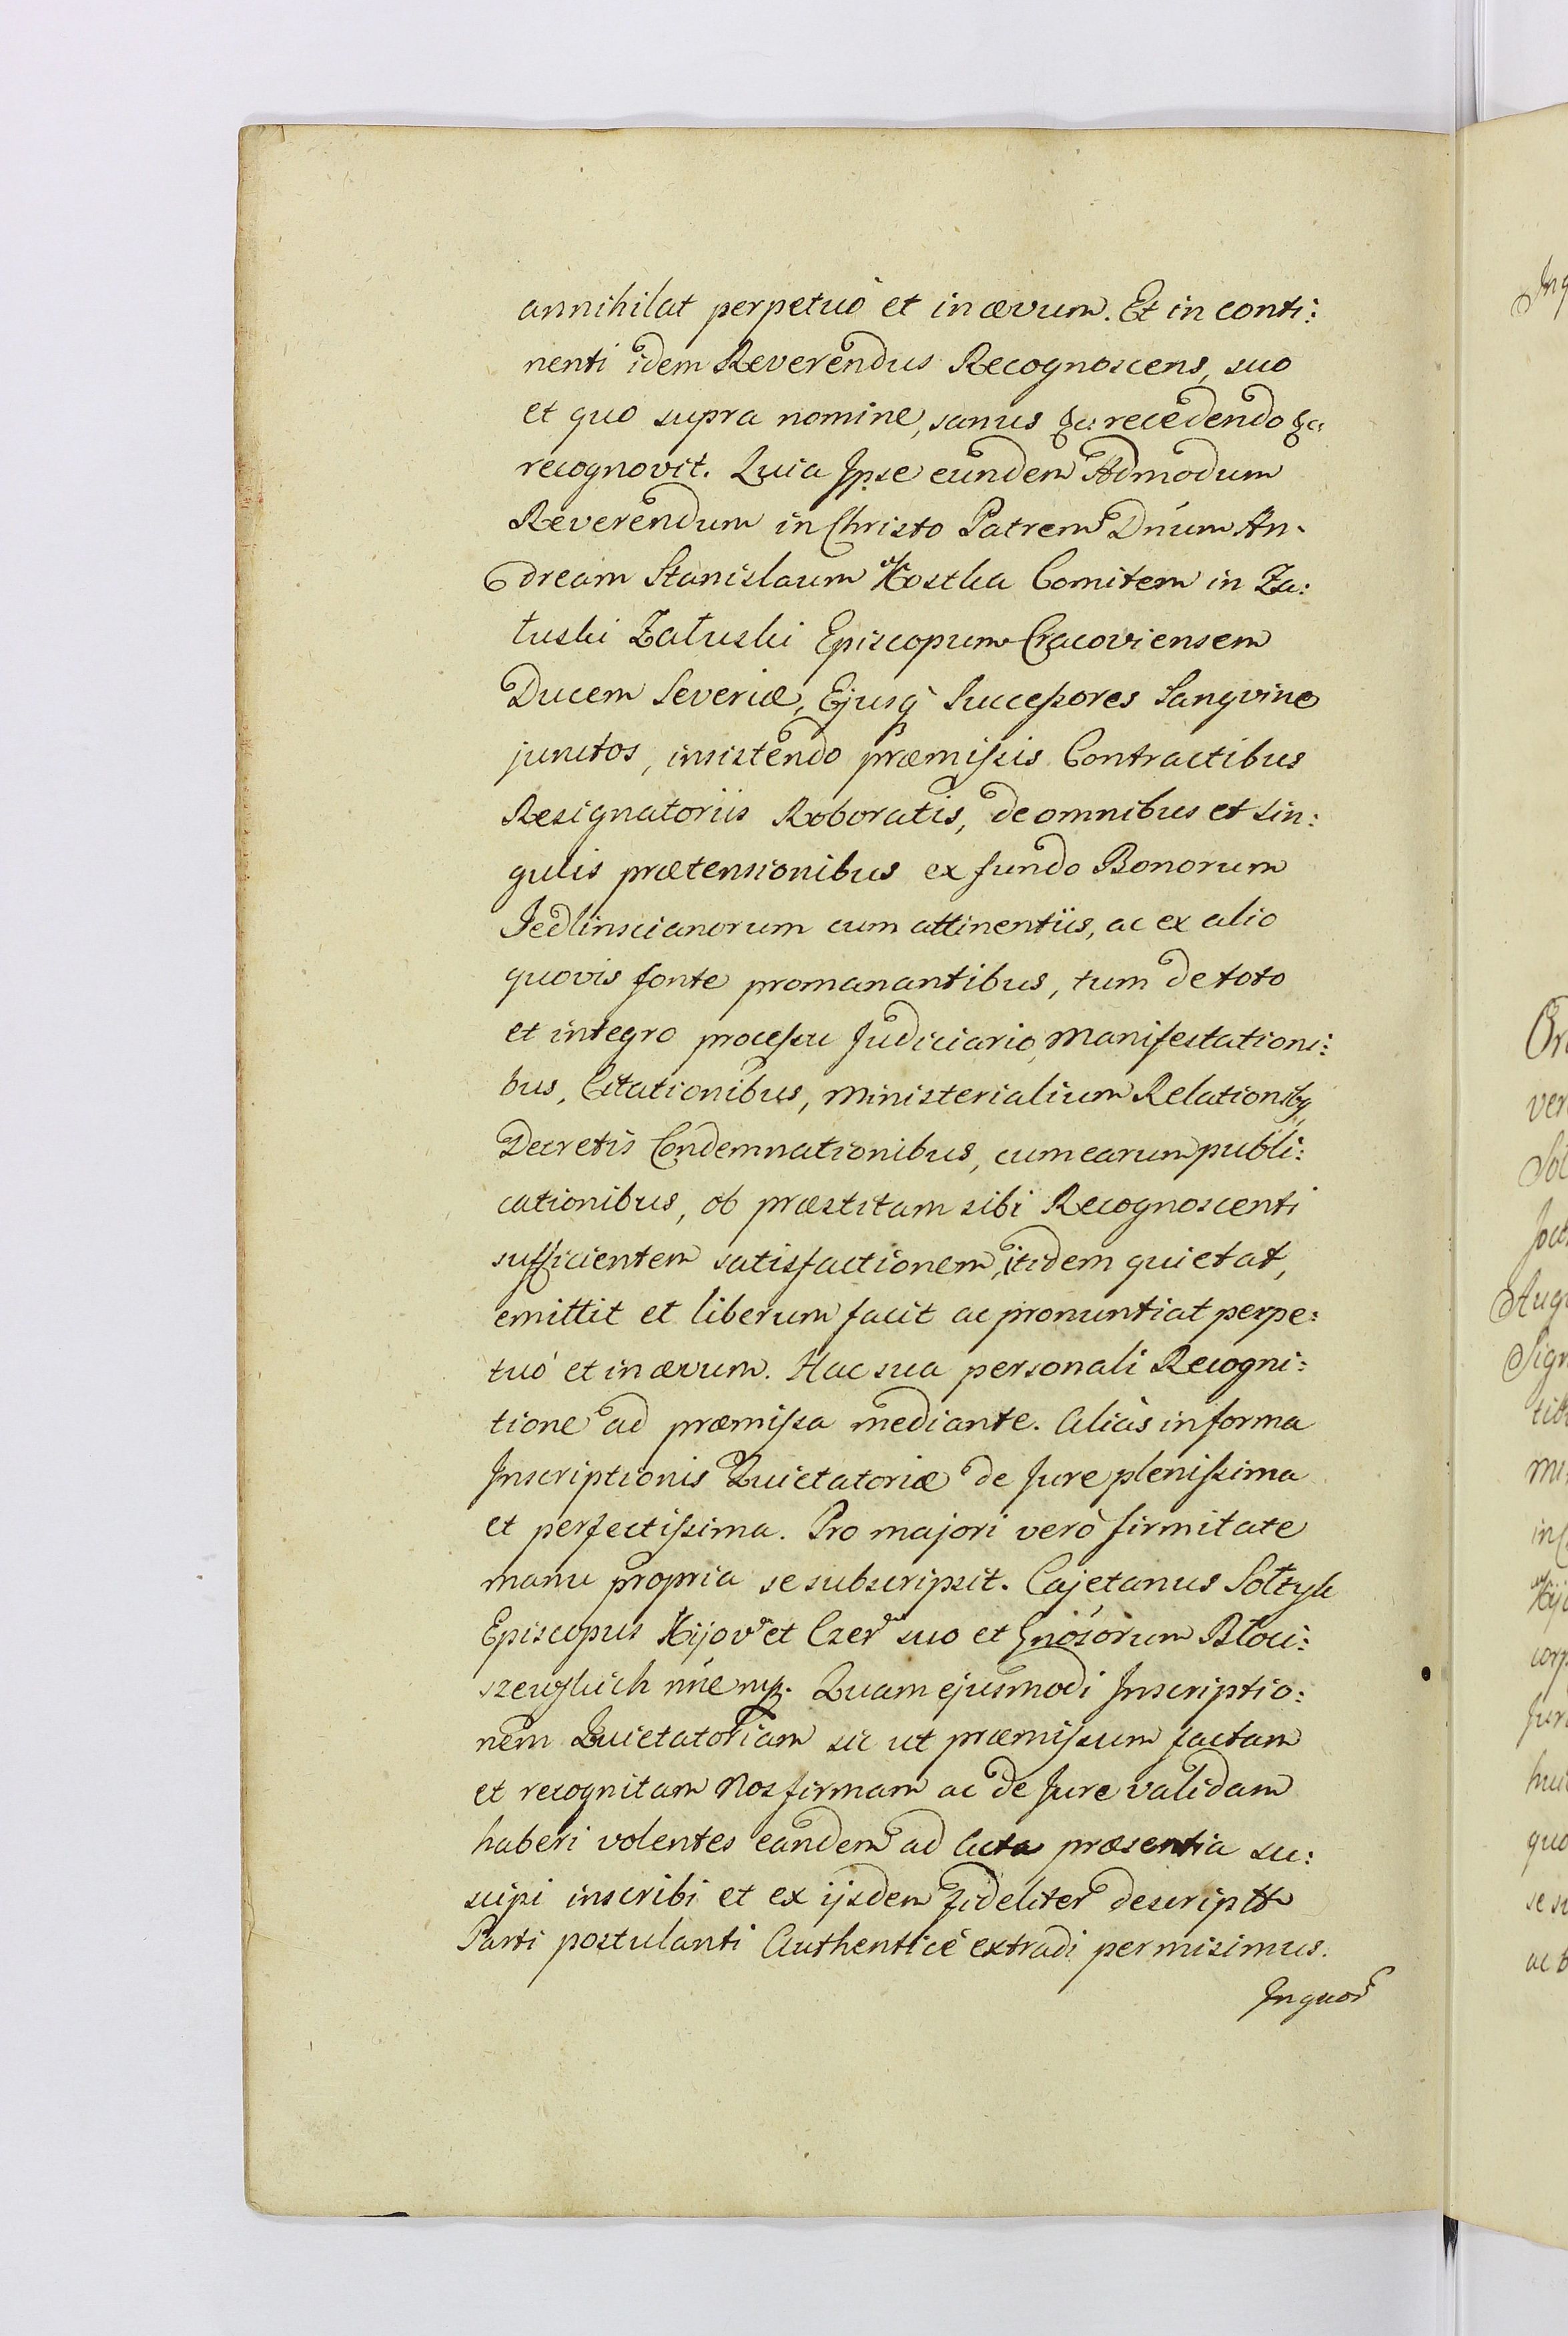 annihilat perpetuò et in ævum. Et in conti:
nenti idem Reverendus Recognoscens, suo
et quo supra nomine, sanus &c: recedendo &c:
recognovit. Quia Ipse eundem Admodum
Reverendum in Christo Patrem Dn̄um An-
dream Stanislaum Kostka Comitem in Za:
łuski Załuski Episcopum Cracoviensem
Ducem Severiæ, Ejusq̃ Successores Sangvine
junctos, insistendo præmissis Contractibus
Resignatoriis Roboratis, de omnibus et sin:
gulis prætensionibus ex fundo Bonorum
Jedlinscianorum cum attinentiis, ac ex alio
quovis fonte promanantibus, tum de toto
et integro processu Judiciario, Manifestationi:
bus, Citationibus, Ministerialium Relationibq,
Decretis Condemnationibus, cum earum publi:
cationibus, ob præstitam sibi Recognoscenti
sufficientem satisfactionem, itidem quietat,
emittit et liberum facit ac pronuntiat perpe:
tuò et in ævum. Hac sua personali Recogni:
tione ad præmissa mediante. Aliàs in forma
Inscriptionis Quietatoriæ de Jure plenissima
et perfectissima. Pro majori verò firmitate
manu propria se subscripsit. Cajetanus Sołtyk
Episcopus Kijov et Czer suo et Gn̄osorum Błoci:
szewskich nn̄e mp. Quam ejusmodi Inscriptio:
nem Quietatoriam sic ut præmissum factam
et recognitam Nos firmam ac de Jure validam
haberi volentes eandem ad Acta præsentia su:
scipi inscribi et ex ijsdem fideliter descriptã
Parti postulanti Authenticè extradi permisimus.
Inquor